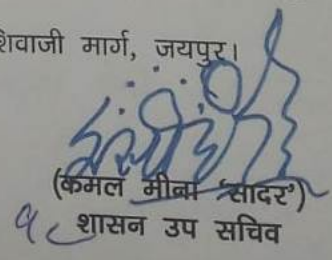 शिवाजी मार्ग, जयपुर।
(कमल मीना 'सादर')
शासन उप सचिव